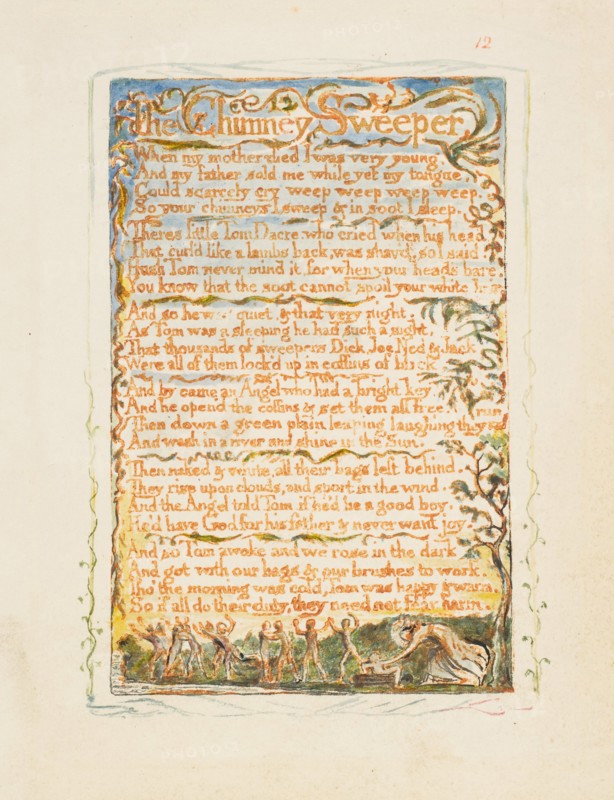 12
The Chimney Sweeper
When my mother died I was very young,
And my father sold me while yet my tongue,
Could scarcely cry weep weep weep weep.
So your chimneys I sweep & in soot I sleep.
Theres little Tom Dacre, who cried when his head
That curl'd like a lambs back, was shav'd, so I said
Hush Tom never mind it, for when your head's bare,
You know that the soot cannot spoil your white
And so he quiet, & that very night,
As Tom was a sleeping he had such a sight,
That thousands of sweepers Dick, Joe, Ned & Jack
Were all of them lock'd up in coffins of black
And by came an Angel who had a bright key
And he open'd the coffins & set them all free.
run
Then down a green plain leaping laughing they
And wash in a river and shine in the Sun.
Then naked & white, all their bags left behind,
They rise upon clouds, and sport in the wind.
And the Angel told Tom if he'd be a good boy,
He'd have God for his father & never want joy.
And so Tom awoke and we rose in the dark
And got with our bags & our brushes to work.
Tho' the morning was cold, Tom was happy & warm,
So if all do their duty, they need not fear harm.